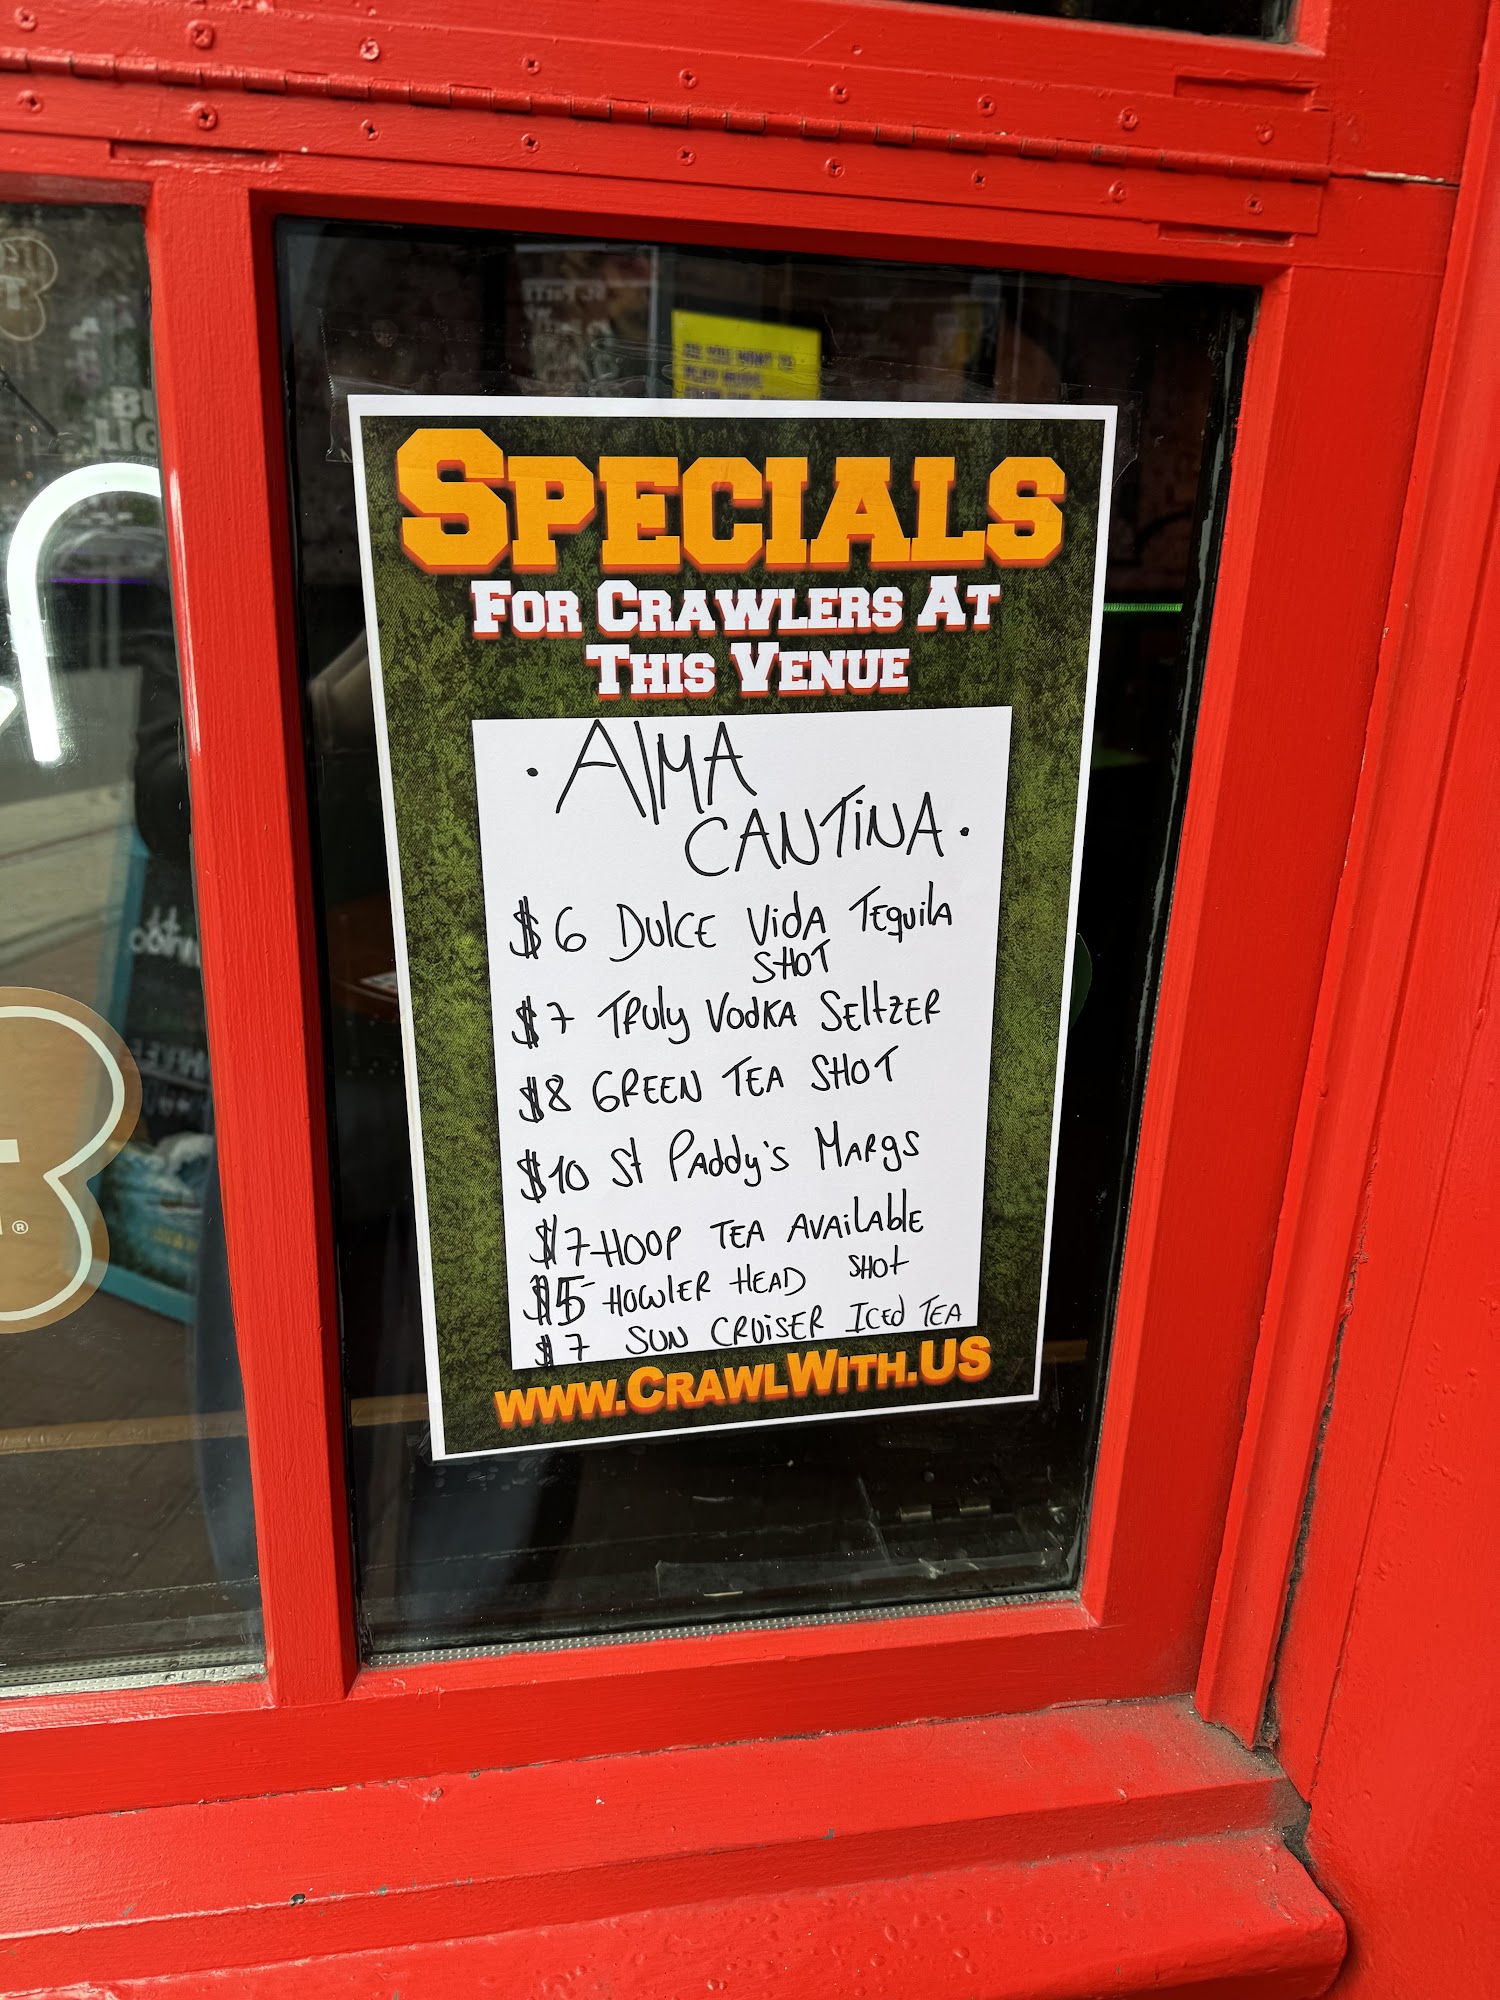 DO YOU WANT TO
PLAY MORE
BU
LIG
SPECIALS
FOR CRAWLERS AT
THIS VENUE
· AlMA
CANTiNA ·
$6 DulCE VidA TEquilA
SHOT
$7 TRuly VodKA SEltzER
$8 GREEN TEA SHOT
$10 St PAddy's MARgS
$7 HOOP TEA AVAilAblE
$5 HOWlER HEAD SHOt
$7 SUN CRUiSER ICEd TEA
WWW.CRAWLWITH.US
®